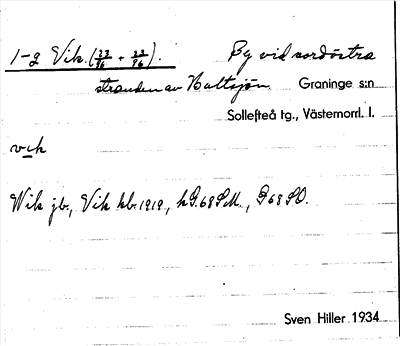 1-2 Vik. (23/96 + 23/96). By vid nordöstra
stranden av Hultsjön. Graninge s:n
Sollefteå tg., Västernorrl. l.
vik
Wik jb., Vik kb. 1919, kG. 68 SM., G 68 SO.
Sven Hiller 1934